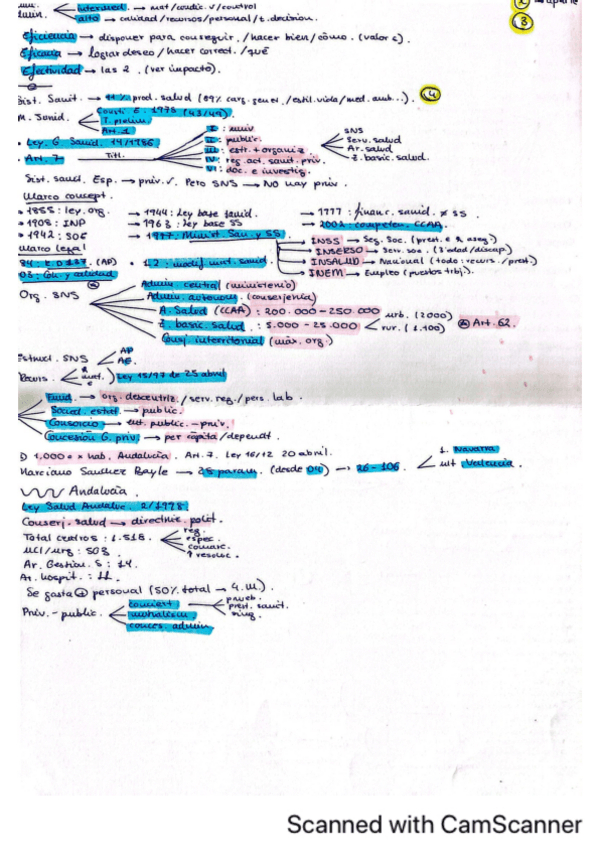 intermed. → mat/condic. v/control
alto → calidad/recursos/personal/t. decision.
3
Eficiencia → disponer para conseguir. /hacer bien/cómo. (valor €).
Eficacia → lograr deseo/hacer correct./qué
Efectividad → las 2. (ver impacto).
Sist. Sanit. → 11% prod. salud (89% carg. genet./estil. vida/med. amb...). 4
M. Jurid. Constit. E. 1978 (43/49).
T. prelim.
Art. 1
• Ley. G. Sanid. 14/1986
• Art. 7 Tít.
I: univ
II: public.
III: estr. + organiz
IV: reg. act. sanit. priv.
VI: doc. e investig.
SNS
Serv. salud
Ar. salud
Z. basic. salud.
Sist. sanid. Esp. → priv. ✓. Pero SNS → NO hay priv.
Marco concept.
• 1855: ley. org. → 1944: Ley base sanid. → 1977: financ. sanid. ≠ SS
• 1908: INP → 1963: ley base SS → 2002: competen. CCAA.
• 1942: SOE → 1977: Minist. San. y SS.
Marco legal
INSS → Seg. Soc.
INSERSO → Serv. soc. (3ª edad/discap.)
INSALUD → Nacional (todo: recurs./prest.)
INEM → Empleo (puestos trbj.).
84: D 137. (AP) •
03: Coh. y calidad
Org. SNS
Admin. central (ministerio)
Admin. autonom. (consejería)
A. Salud (CCAA): 200.000-250.000
Z. basic. salud.: 5.000-25.000 urb. (2000) rur. (1.100) Art. 62.
Consj. interritorial (máx. org.)
Estruct. SNS AP
AE.
Ley 15/97 de 25 abril
Fund. → org. descentriz./serv. reg./pers. lab.
Social. estat → public.
Consorcio → ent. public. - priv.
Concesión G. priv → per cápita/dependt.
1.000 € x hab. Andalucía. Art. 7. Ley 16/12 20 abril.
1. Navarra
Marciano Sanchez Bayle → 25 param. (desde 04) → 26-106. ult Valencia.
Andalucía.
Ley Salud Andaluc. 2/1998
Conserj. salud → directric. polit.
Total centros: 1.518.
reg.
espec.
comarc.
↑ resoluc.
UCI/urg: 503
Ar. Gestión. S: 14.
Ar. hospit.: 11.
Se gasta + personal (50% total → 4. M.).
Priv. - public.
conciert
prueb.
prest. sanit.
mutualism
conces. admin
Scanned with CamScanner